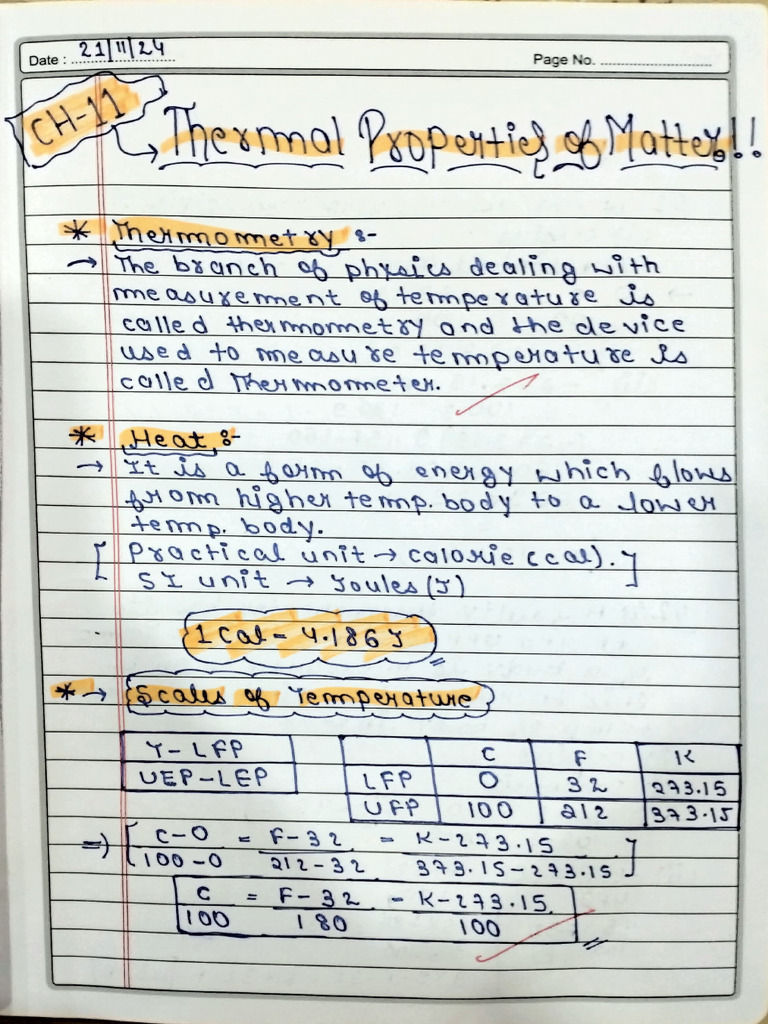 Date : 21/11/24 Page No.
CH-11
Thermal Properties of Matter!!
* Thermometry :-
→ The branch of physics dealing with
measurement of temperature is
called thermometry and the device
used to measure temperature is
called Thermometer.
* Heat :-
→ It is a form of energy which flows
from higher temp. body to a lower
temp. body.
[ Practical unit → calorie (cal). ]
SI unit → Joules (J)
1 Cal = 4.186 J
* → Scales of Temperature
Y-LFP
UEP-LEP
C F K
LFP 0 32 273.15
UFP 100 212 373.15
⇒ [ C-0/100-0 = F-32/212-32 = K-273.15/373.15-273.15 ]
C/100 = F-32/180 = K-273.15/100